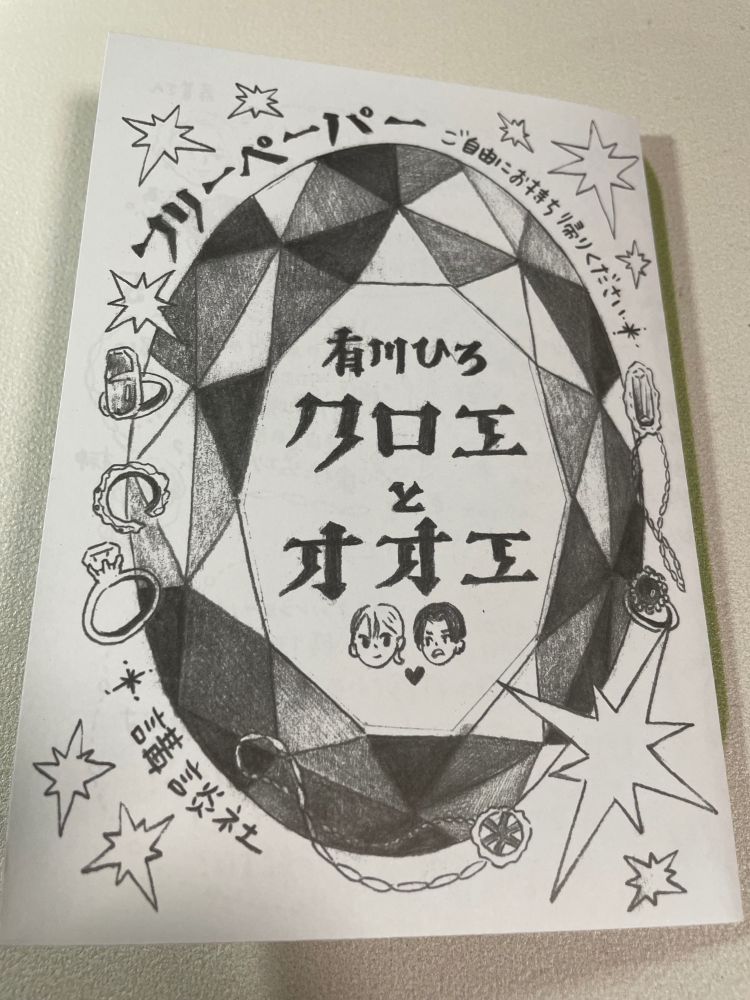 フリーペーパー
ご自由にお持ち帰りください
有川ひろ
クロエ
と
オオエ
講談社